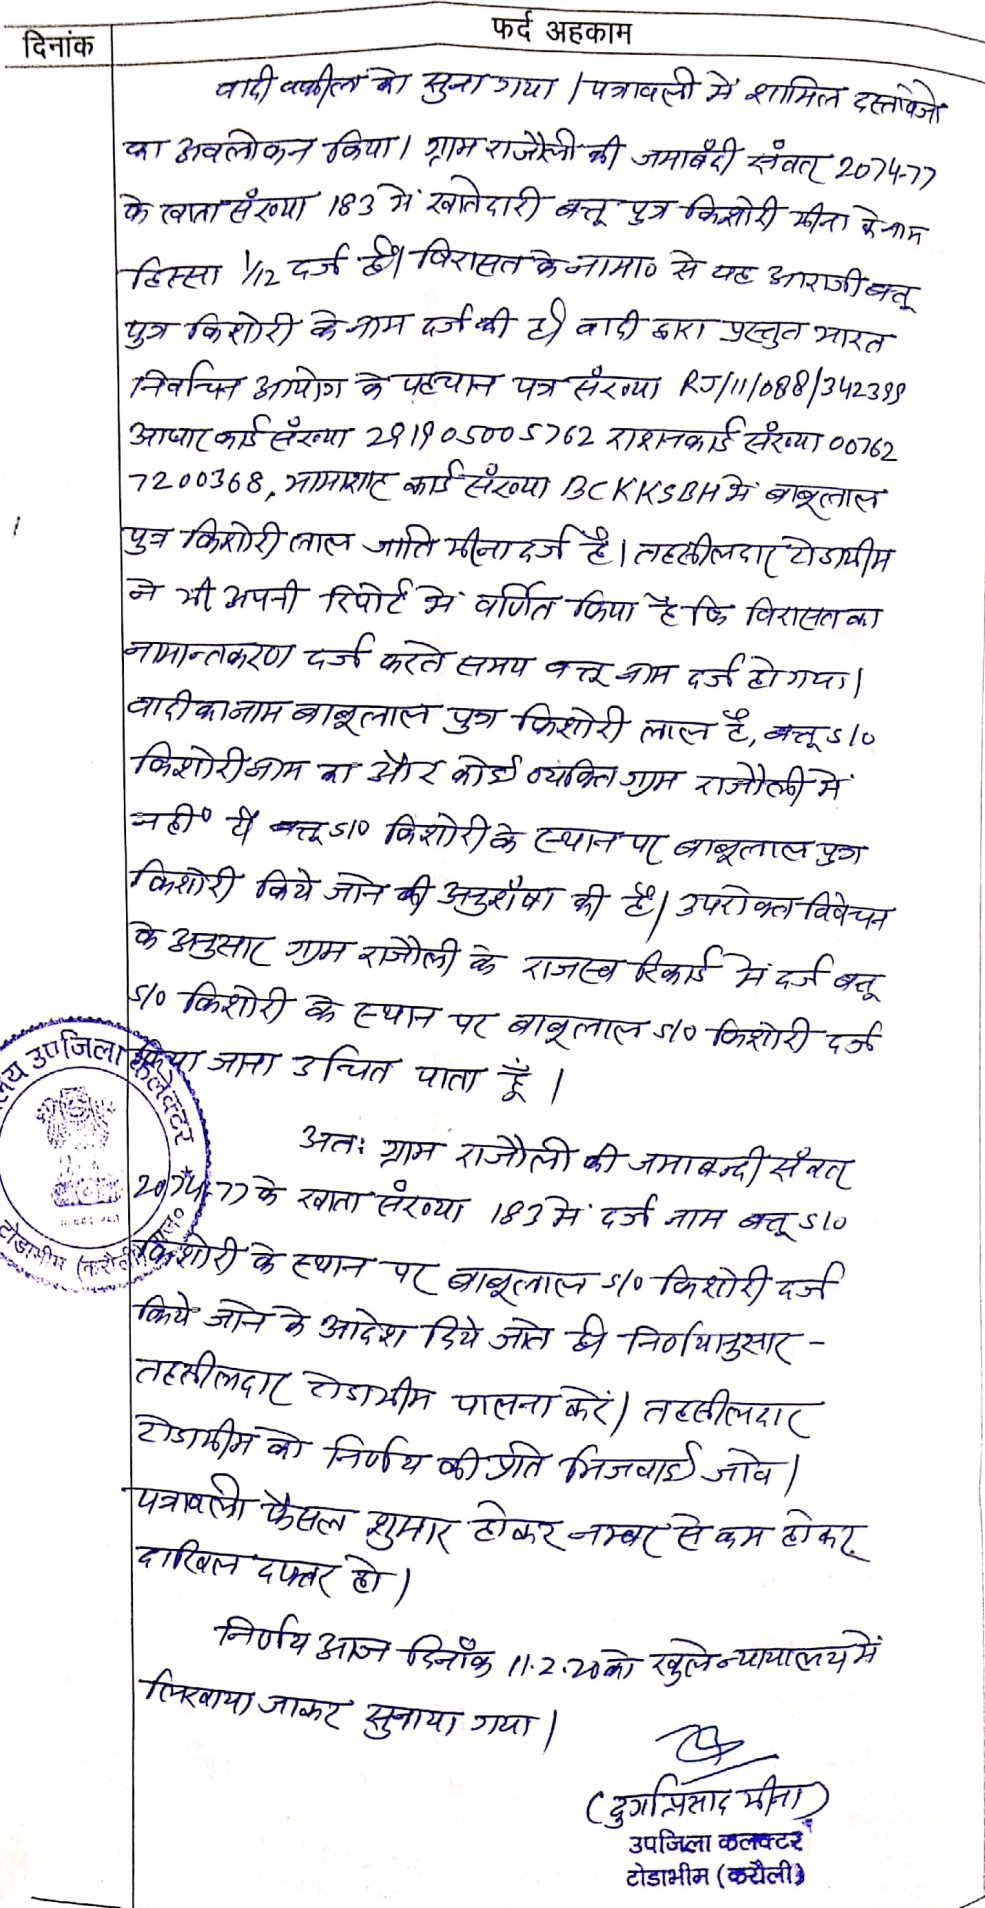 दिनांक
फर्द अहकाम
वादी वकील को सुना गया। पत्रावली में शामिल दस्तावेजो
का अवलोकन किया। ग्राम राजौली की जमाबंदी संवत् 2074-77
के खाता संख्या 183 में खातेदारी बत्तू पुत्र किशोरी मीना के नाम
हिस्सा 1/12 दर्ज है। विरासत के नामा० से यह आराजी बत्तू
पुत्र किशोरी के नाम दर्ज की है। वादी द्वारा प्रस्तुत भारत
निर्वाचन आयोग के पहचान पत्र संख्या RJ/11/088/342399
आधार कार्ड संख्या 291905005762 राशनकार्ड संख्या 00762
7200368, भामाशाह कार्ड संख्या BCKKSBH में बाबूलाल
पुत्र किशोरी लाल जाति मीना दर्ज है। तहसीलदार टोडाभीम
ने भी अपनी रिपोर्ट में वर्णित किया है कि विरासत का
नामान्तकरण दर्ज करते समय बत्तू नाम दर्ज हो गया।
वादी का नाम बाबूलाल पुत्र किशोरी लाल है, बत्तू S/O
किशोरी नाम का और कोई व्यक्ति ग्राम राजौली में
नहीं है। बत्तू S/O किशोरी के स्थान पर बाबूलाल पुत्र
किशोरी किये जाने की अनुशंषा की है। उपरोक्त विवेचन
के अनुसार ग्राम राजौली के राजस्व रिकार्ड में दर्ज बत्तू
S/O किशोरी के स्थान पर बाबूलाल S/O किशोरी दर्ज
किया जाना उचित पाता हूँ।
अतः ग्राम राजौली की जमाबन्दी संवत्
2074-77 के खाता संख्या 183 में दर्ज नाम बत्तू S/O
किशोरी के स्थान पर बाबूलाल S/O किशोरी दर्ज
किये जाने के आदेश दिये जाते है। निर्णयानुसार -
तहसीलदार टोडाभीम पालना करें। तहसीलदार
टोडाभीम को निर्णय की प्रति भिजवाई जावे।
पत्रावली फैसल शुमार होकर नम्बर से कम होकर
दाखिल दफ्तर हो।
निर्णय आज दिनाँक 11.2.20 को खुले न्यायालय में
लिखवाया जाकर सुनाया गया।
(दुर्गाप्रसाद मीना)
उपजिला कलक्टर
टोडाभीम (करौली)
उपजिला कलेक्टर
टोडाभीम (करौली)